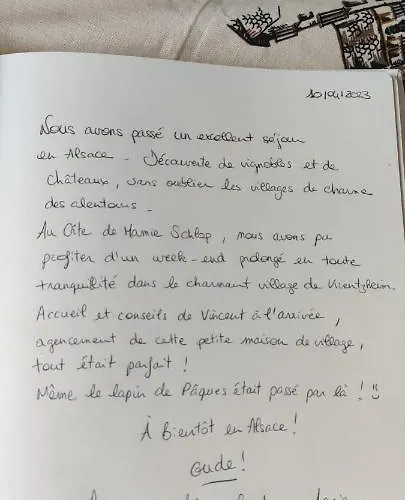 10/04/2023
Nous avons passé un excellent séjour
en Alsace - Découverte de vignobles et de
châteaux, sans oublier les villages de charme
des alentours -
Au Gîte de Mamie Schlop, nous avons pu
profiter d'un week-end prolongé en toute
tranquillité dans le charmant village de Kientzheim.
Accueil et conseils de Vincent à l'arrivée,
agencement de cette petite maison de village,
tout était parfait !
Même le lapin de Pâques était passé par là ! :)
À Bientôt en Alsace !
Gude !